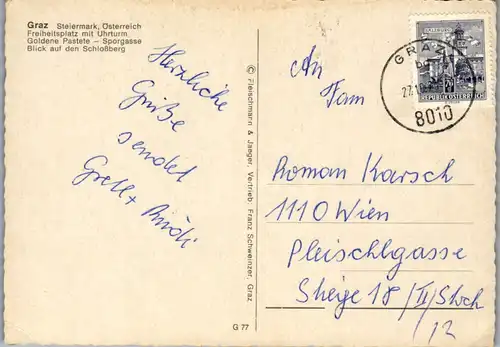 Graz Steiermark, Österreich
Freiheitsplatz mit Uhrturm
Goldene Pastete – Sporgasse
Blick auf den Schloßberg
Herzliche
Grüße
sendet
Gretl +
© Fleischmann & Jaeger, Vertrieb: Franz Schweinzer, Graz
G 77
GRAZ
8010
REPUBLIK ÖSTERREICH
An
Fam
Roman Karsch
1110 Wien
Pleischlgasse
Stiege 18/II/Stock
12